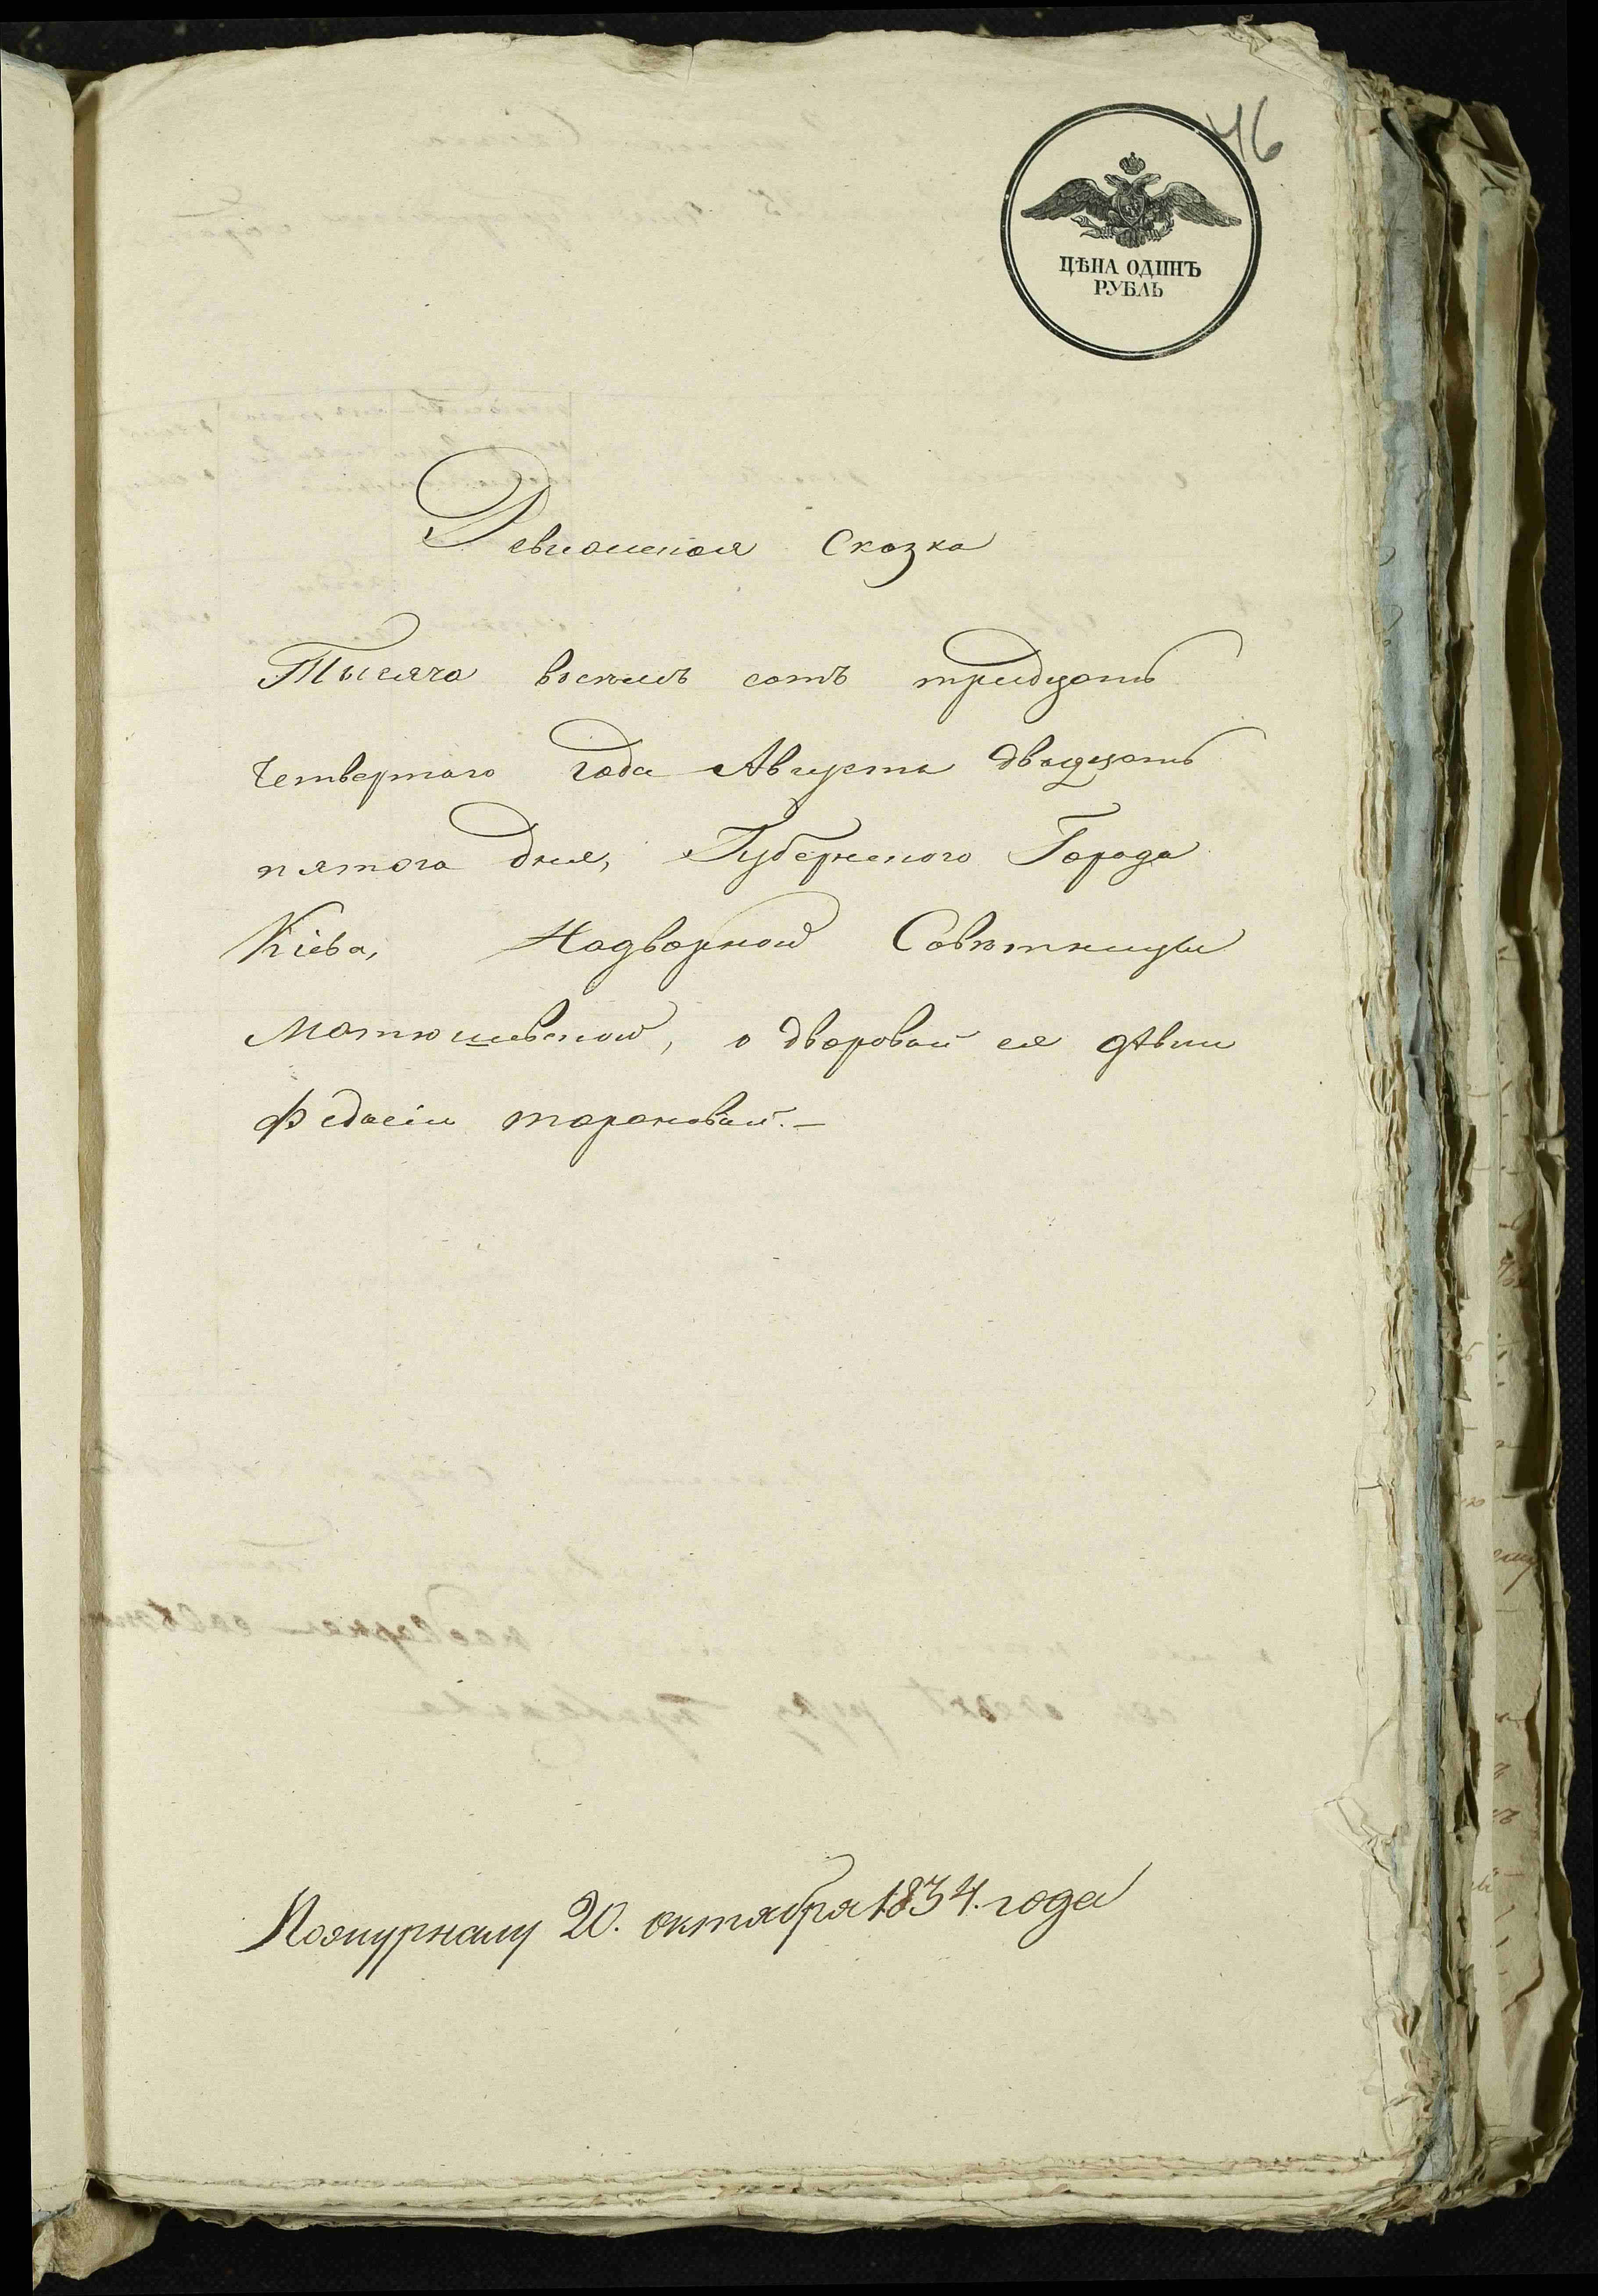 46
ЦѢНА ОДИНЪ
РУБЛЬ
Ревизская Сказка
Тысяча восемъ сотъ тридцать
Четвертаго года Августа двадцать
пятого дня, Губернского Города
Кіева, Надворной Совѣтницы
Матюшевской, о дворовой ея дѣвки
Федосіи тарановой.—
По журналу 20. октября 1834. года